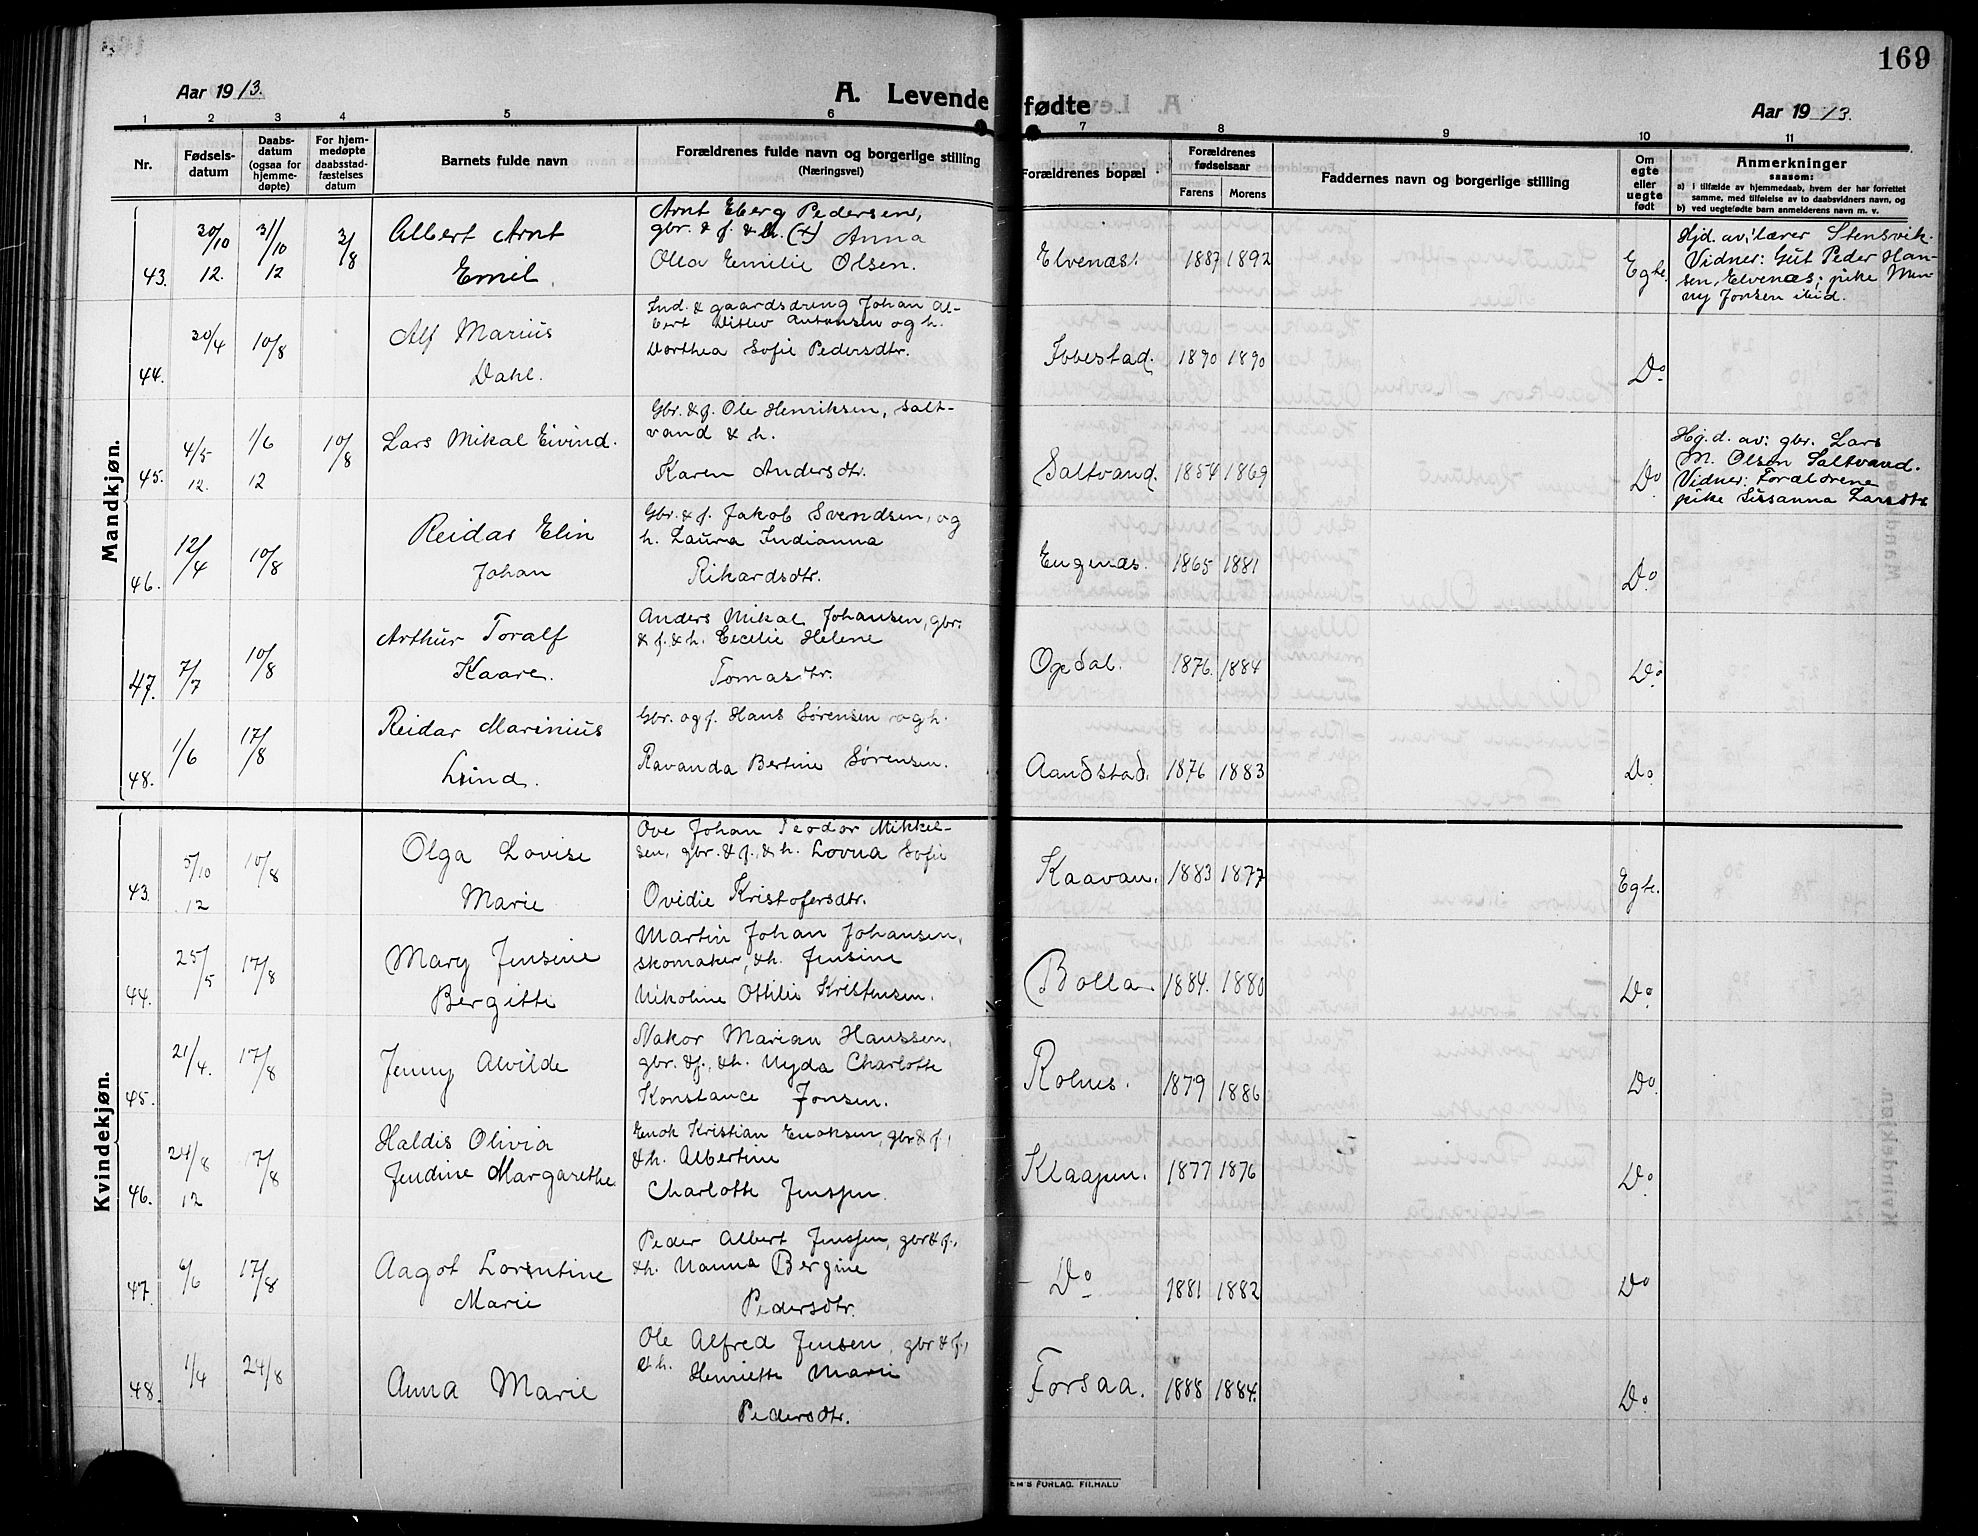 169
Aar 1913.
A. Levendefødte
Aar 1913.
1 2 3 4 5 6 7 8 9 10 11
Nr.
Fødsels-
datum
Daabs-
datum
(ogsaa for
hjemme-
døpte)
For hjem-
medøpte
daabsstad-
fæstelses
datum
Barnets fulde navn
Forældrenes fulde navn og borgerlige stilling
(Næringsvei)
Forældrenes bopæl
Forældrenes
fødselsaar
Farens Morens
Faddernes navn og borgerlige stilling
Om
egte
eller
uegte
født
Anmerkninger
saasom:
a) i tilfælde av hjemmedaab, hvem der har forrettet
samme, med tilføielse av to daabsvidners navn, og
b) ved uegtefødte barn anmelderens navn m. v.
Mandkjøn.
43. 30/10 12. 31/10 12 3/8
Albert Arnt
Emil.
Arnt Eberg Pedersen,
gbr. & f. & h. (x) Anna
Olea Emilie Olsen.
Elvenæs. 1887 1892
Egte.
Hjd. av: Lærer Stensvik.
Vidner: Gut Peder Han-
sen, Elvenæs; pike Men-
ny Jonsen ibid.
44. 30/4 10/8
Alf Marius
Dahl.
Ind. & gaardsdreng Johan Al-
bert Ditlev Antonsen og h.
Dorthea Sofie Pedersdtr.
Ibbestad. 1890 1890
Do.
45. 4/5 12. 1/6 12 10/8
Lars Mikal Eivind.
Gbr. & f. Ole Henriksen, Salt-
vand & h.
Karen Andersdtr.
Saltvand. 1854 1869
Do.
Hj.d. av: gbr. Lars
M. Olsen Saltvand.
Vidner: Forældrene
pike Susanna Larsdtr
46. 12/4 10/8
Reidar Elin
Johan
Gbr. & f. Jakob Svendsen, og
h. Laura Indianna
Rikardsdtr.
Engenæs. 1865 1881
Do.
47. 7/7 10/8
Arthur Toralf
Kaare.
Anders Mikal Johansen, gbr.
& f. & h. Cecilie Helene
Tomasdtr.
Opdal. 1876. 1884
Do.
48. 1/6 17/8
Reidar Marinius
Lind.
Gbr. og f. Hans Sørensen og h.
Ravanda Bertine Sørensen.
Aandstad. 1876 1883
Do
Kvindekjøn.
43. 5/10 12 10/8
Olga Lovise
Marie
Ove Johan Teodor Mikkel-
sen, gbr. & f., & h. Lovna Sofie
Ovidie Kristofersdtr.
Kaavan. 1883 1877
Egte.
44. 25/5 17/8
Mary Jensine
Bergitte
Martin Johan Johansen,
skomaker, & h. Jensine
Nikoline Ottilie Kristensen.
Bolla 1884. 1880
Do.
45. 21/4. 17/8
Jenny Alvilde
Nakor Marian Hanssen,
gbr. & f., & h. Nyda Charlotte
Konstance Jonsen.
Rolnes. 1879 1886
Do.
46. 24/8 12 17/8
Haldis Olivia
Jendine Margarethe
Enok Kristian Enoksen, gbr & f.,
& h. Albertine
Charlotte Jenssen.
Klaapen. 1877 1876
Do.
47. 6/6 17/8
Aagot Lorentine
Marie
Peder Albert Jenssen, gbr & f.,
& h. Nanna Bergine
Pedersdtr.
Do 1881 1882
Do
48. 1/4 24/8
Anna Marie
Ole Alfred Jensen, gbr & f.,
& h. Henriette Marie
Pedersdtr.
Forsaa. 1888 1884.
Do.
EM'S FORLAG. FILHALD